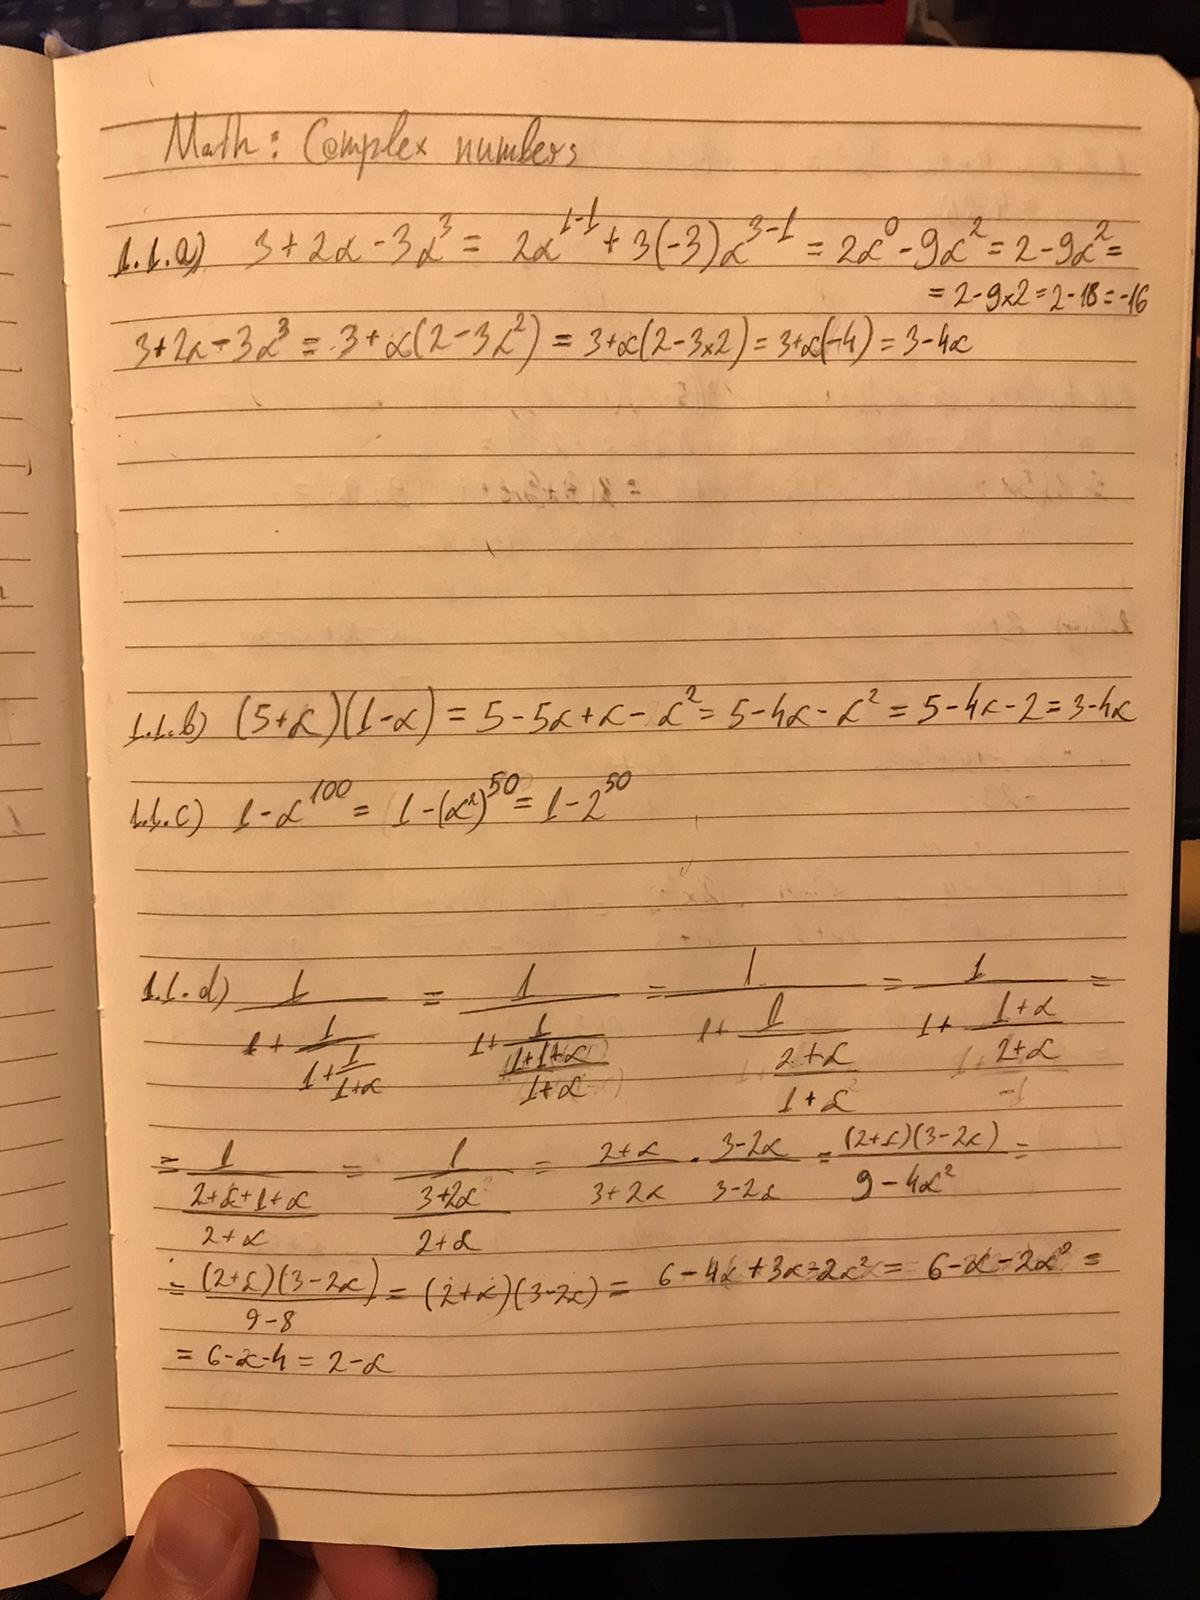 Math: Complex numbers
1.1.a) 3 + 2α - 3α³ = 2α¹⁻¹ + 3(-3)α³⁻¹ = 2α⁰ - 9α² = 2 - 9α² =
= 2-9×2 = 2-18 = -16
3+2α-3α³ = 3+α(2-3α²) = 3+α(2-3×2) = 3+α(-4) = 3-4α
1.1.b) (5+α)(1-α) = 5-5α+α-α² = 5-4α-α² = 5-4α-2 = 3-4α
1.1.c) 1-α¹⁰⁰ = 1-(α²)⁵⁰ = 1-2⁵⁰
1.1.d) 1/(1+1/(1+1/(1+α))) = 1/(1+1/((1+1+α)/(1+α))) = 1/(1+1/((2+α)/(1+α))) = 1/(1+(1+α)/(2+α)) =
= 1/((2+α+1+α)/(2+α)) = 1/((3+2α)/(2+α)) = (2+α)/(3+2α) · (3-2α)/(3-2α) = (2+α)(3-2α)/(9-4α²) =
= (2+α)(3-2α)/(9-8) = (2+α)(3-2α) = 6-4α+3α-2α² = 6-α-2α² =
= 6-α-4 = 2-α